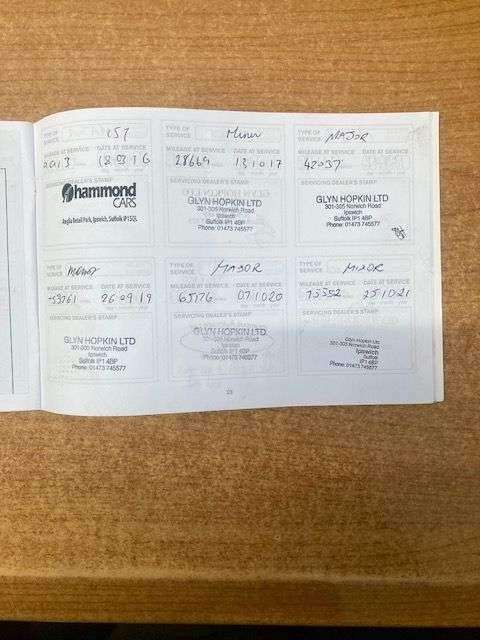 TYPE OF SERVICE 1ST
MILEAGE AT SERVICE DATE AT SERVICE
18 03 16
SERVICING DEALER'S STAMP
hammond
CARS
Anglia Retail Park, Ipswich, Suffolk IP1 5QL
TYPE OF SERVICE Minor
MILEAGE AT SERVICE DATE AT SERVICE
28669 13 10 17
SERVICING DEALER'S STAMP
GLYN HOPKIN LTD
301-305 Norwich Road
Ipswich
Suffolk IP1 4BP
Phone: 01473 745577
TYPE OF SERVICE MAJOR
MILEAGE AT SERVICE DATE AT SERVICE
42037
SERVICING DEALER'S STAMP
GLYN HOPKIN LTD
301-305 Norwich Road
Ipswich
Suffolk IP1 4BP
Phone: 01473 745577
TYPE OF SERVICE minor
MILEAGE AT SERVICE DATE AT SERVICE
53761 26 09 19
SERVICING DEALER'S STAMP
GLYN HOPKIN LTD
301-305 Norwich Road
Ipswich
Suffolk IP1 4BP
Phone: 01473 745577
TYPE OF SERVICE MAJOR
MILEAGE AT SERVICE DATE AT SERVICE
65176 07 10 20
SERVICING DEALER'S STAMP
GLYN HOPKIN LTD
301-305 Norwich Road
Ipswich
Suffolk IP1 4BP
Phone: 01473 745577
TYPE OF SERVICE MINOR
MILEAGE AT SERVICE DATE AT SERVICE
75552 25 10 21
SERVICING DEALER'S STAMP
Glyn Hopkin Ltd
301-305 Norwich Road
Ipswich
Suffolk
IP1 4BP
Phone: 01473 745577
23